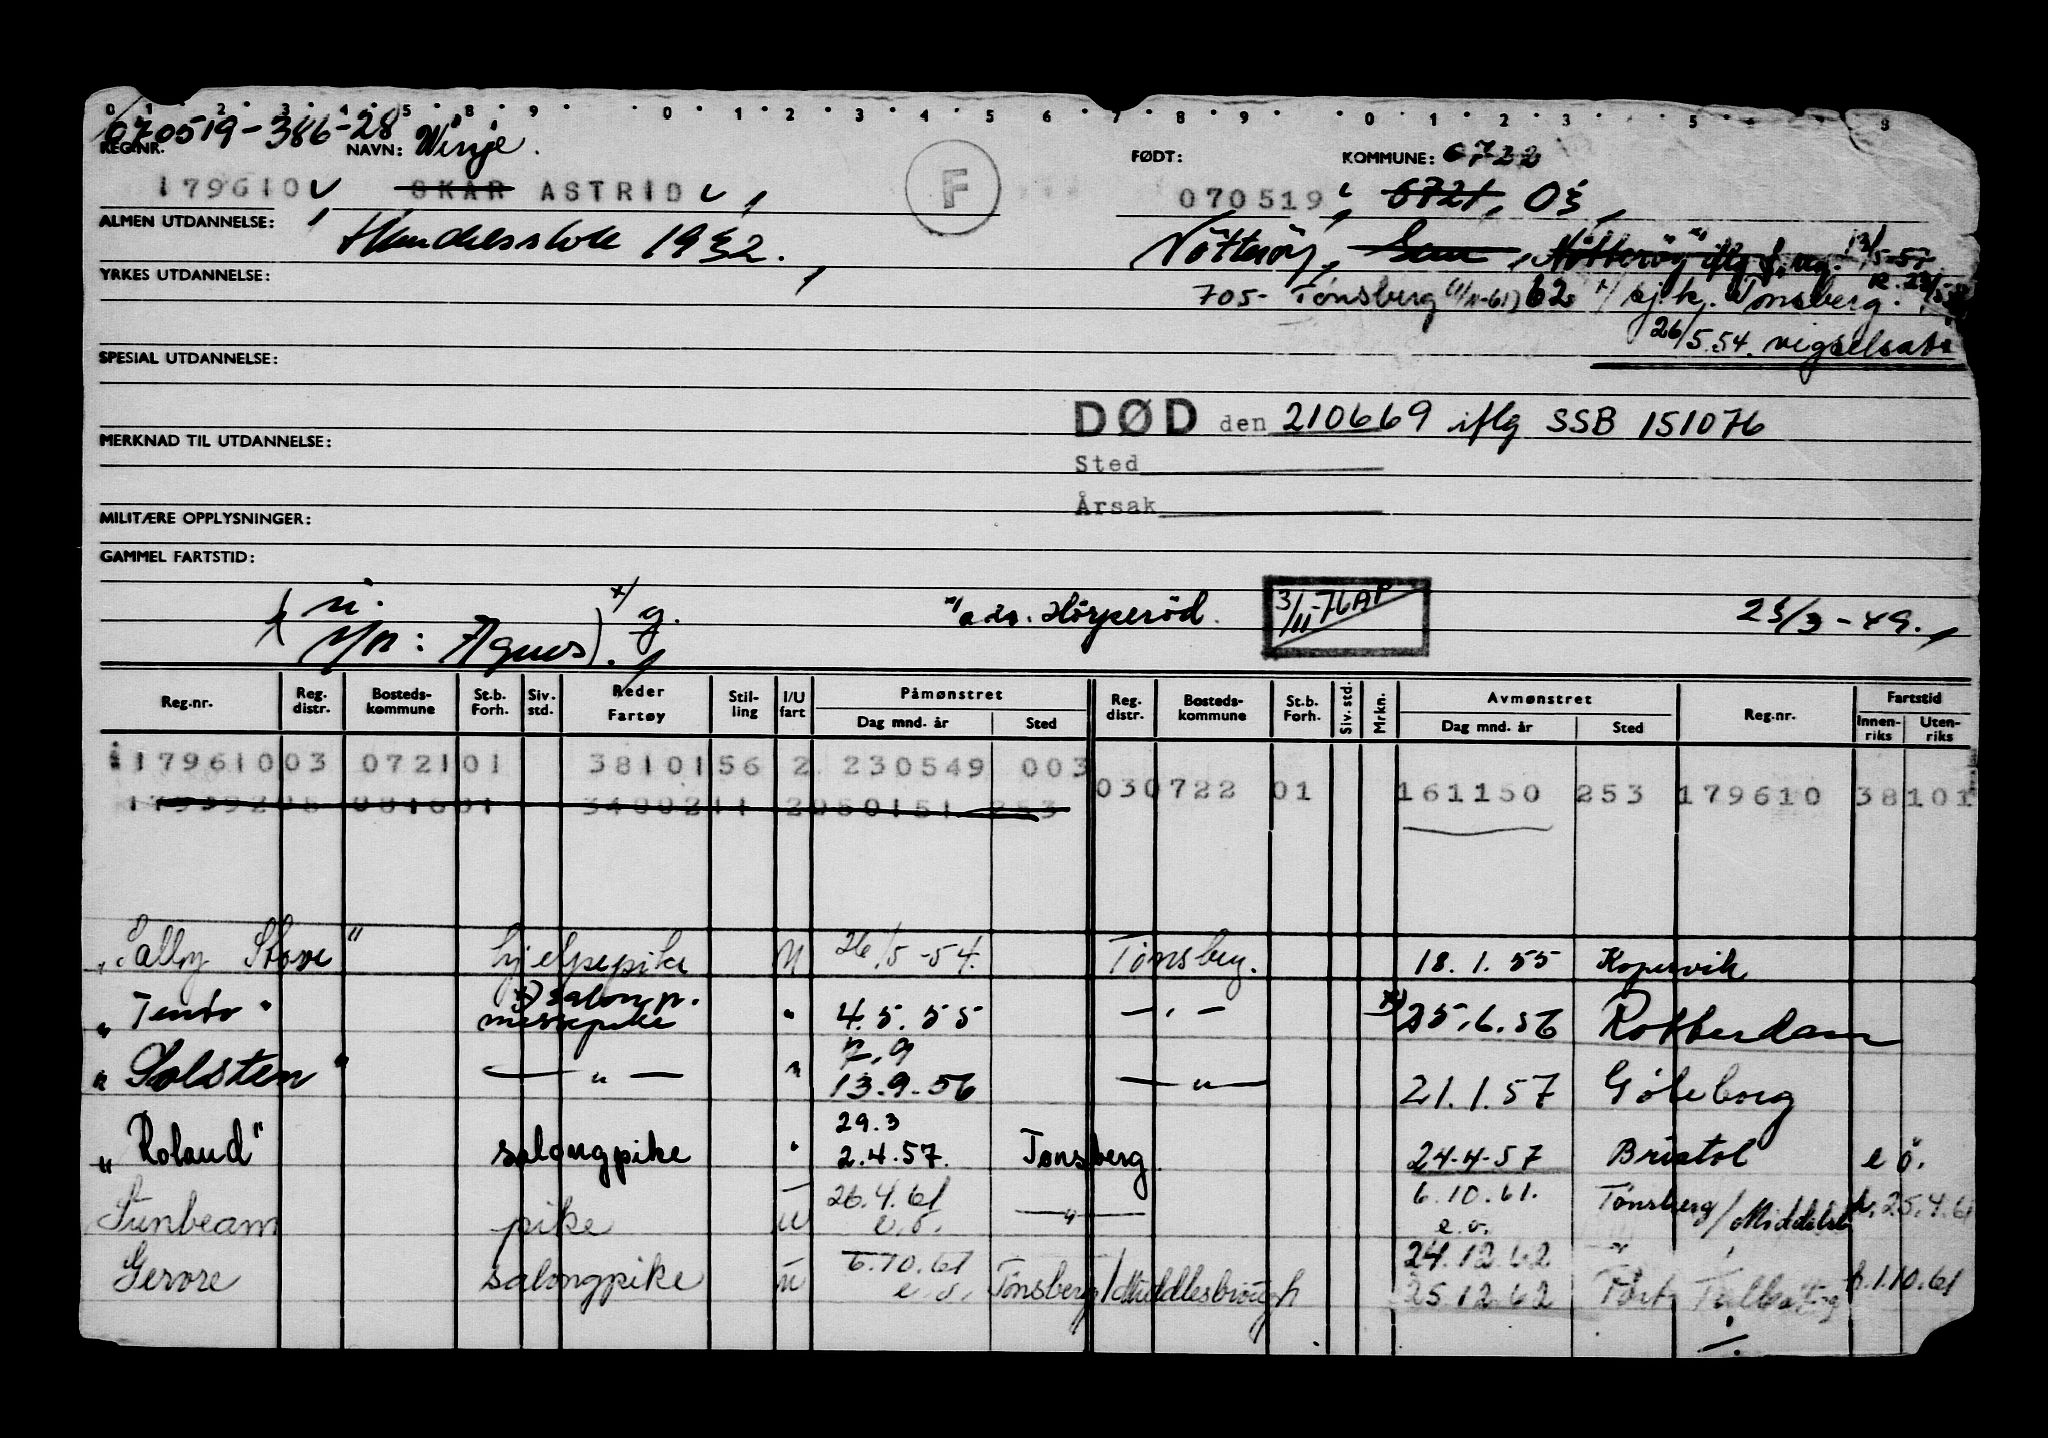 0 1 2 3 4 5 8 9 0 1 2 3 4 5 6 7 8 9 0 1 2 3 5 9
070519-386-28 Winje.
REG.NR. NAVN: FØDT: KOMMUNE: 0722
179610 SKAR ASTRID F 070519 0721, Os,
ALMEN UTDANNELSE: Handelsskole 1932. Nötteröy, Sem, Nötteröy iflg
YRKES UTDANNELSE: 705- Tønsberg 62 sj.k. Tønsberg.
26/5.54. vigselsatt
SPESIAL UTDANNELSE:
DØD den 210669 iflg SSB 151076
MERKNAD TIL UTDANNELSE:
Sted
Årsak
MILITÆRE OPPLYSNINGER:
GAMMEL FARTSTID:
u. x/ g. 3/11-76 AP 23/3-49.
Agnes)
Reg.nr. Reg. distr. Bosteds-kommune St.b. Forh. Siv. std. Reder Fartøy Stil-ling I/U fart Påmønstret Dag mnd. år Sted Reg. distr. Bosteds-kommune St.b. Forh. Siv. std. Mrkn. Avmønstret Dag mnd. år Sted Reg.nr. Fartstid Innen-riks Uten-riks
179610 03 0721 01 3810156 2 230549 003
030722 01 161150 253 179610 38 101
"Sally Stove" hjelpepike U 26/5-54. Tønsberg. 18.1.55 Kopervik
x) salongp.
"Tento" messepike " 4.5.55 -"- x) 25.6.56 Rotterdam
7.9
"Solsten" -"- " 13.9.56 -"- 21.1.57 Göteborg
29.3
"Roland" salongpike " 2.4.57. Tønsberg 24-4-57 Bristol e ö.
26.4.61 6.10.61. Tønsberg/Middelsb f. 25.4.61
Sunbeam pike u e.ö. -"- e.ö.
6.10.61 24.12.62
Gerore salongpike u e.ö. Tønsberg/Middlesbrough 25.12.62 Port Talbot f.1.10.61